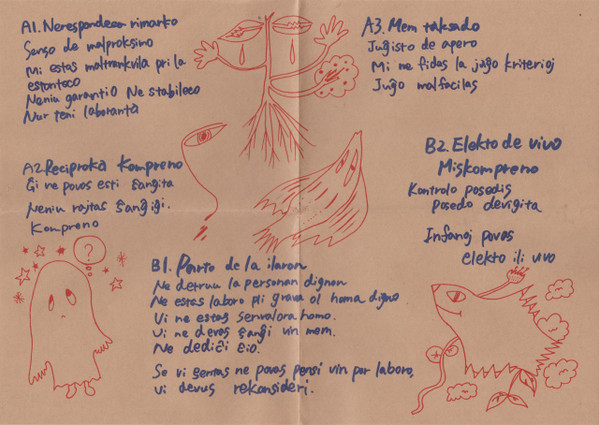 A1. Nerespondeco rimarko
Senso de malproksimo
Mi estas maltrankvila pri la
estonteco
Neniu garantio Ne stabileco
Nur teni laboranta
A2 Reciproka kompreno
Ĝi ne povos esti ŝanĝita
Neniu rajtas ŝanĝiĝi.
Kompreno
?
B1. Parto de la ilaron
Ne detruu la personan dignon
Ne estas laboro pli grava ol homa digno
Vi ne estas senvalora homo.
Vi ne devas ŝanĝi vin mem.
Ne dediĉi ĉio.
Se vi sentas ne povas pensi vin por laboro,
vi devus rekonsideri.
A3. Mem taksado
Juĝisto de apero
Mi ne fidas la juĝo kriterioj
Juĝo malfacilas
B2. Elekto de vivo
Miskompreno
Kontrolo posedis
posedo devigita
Infanoj povas
elekto ili vivo